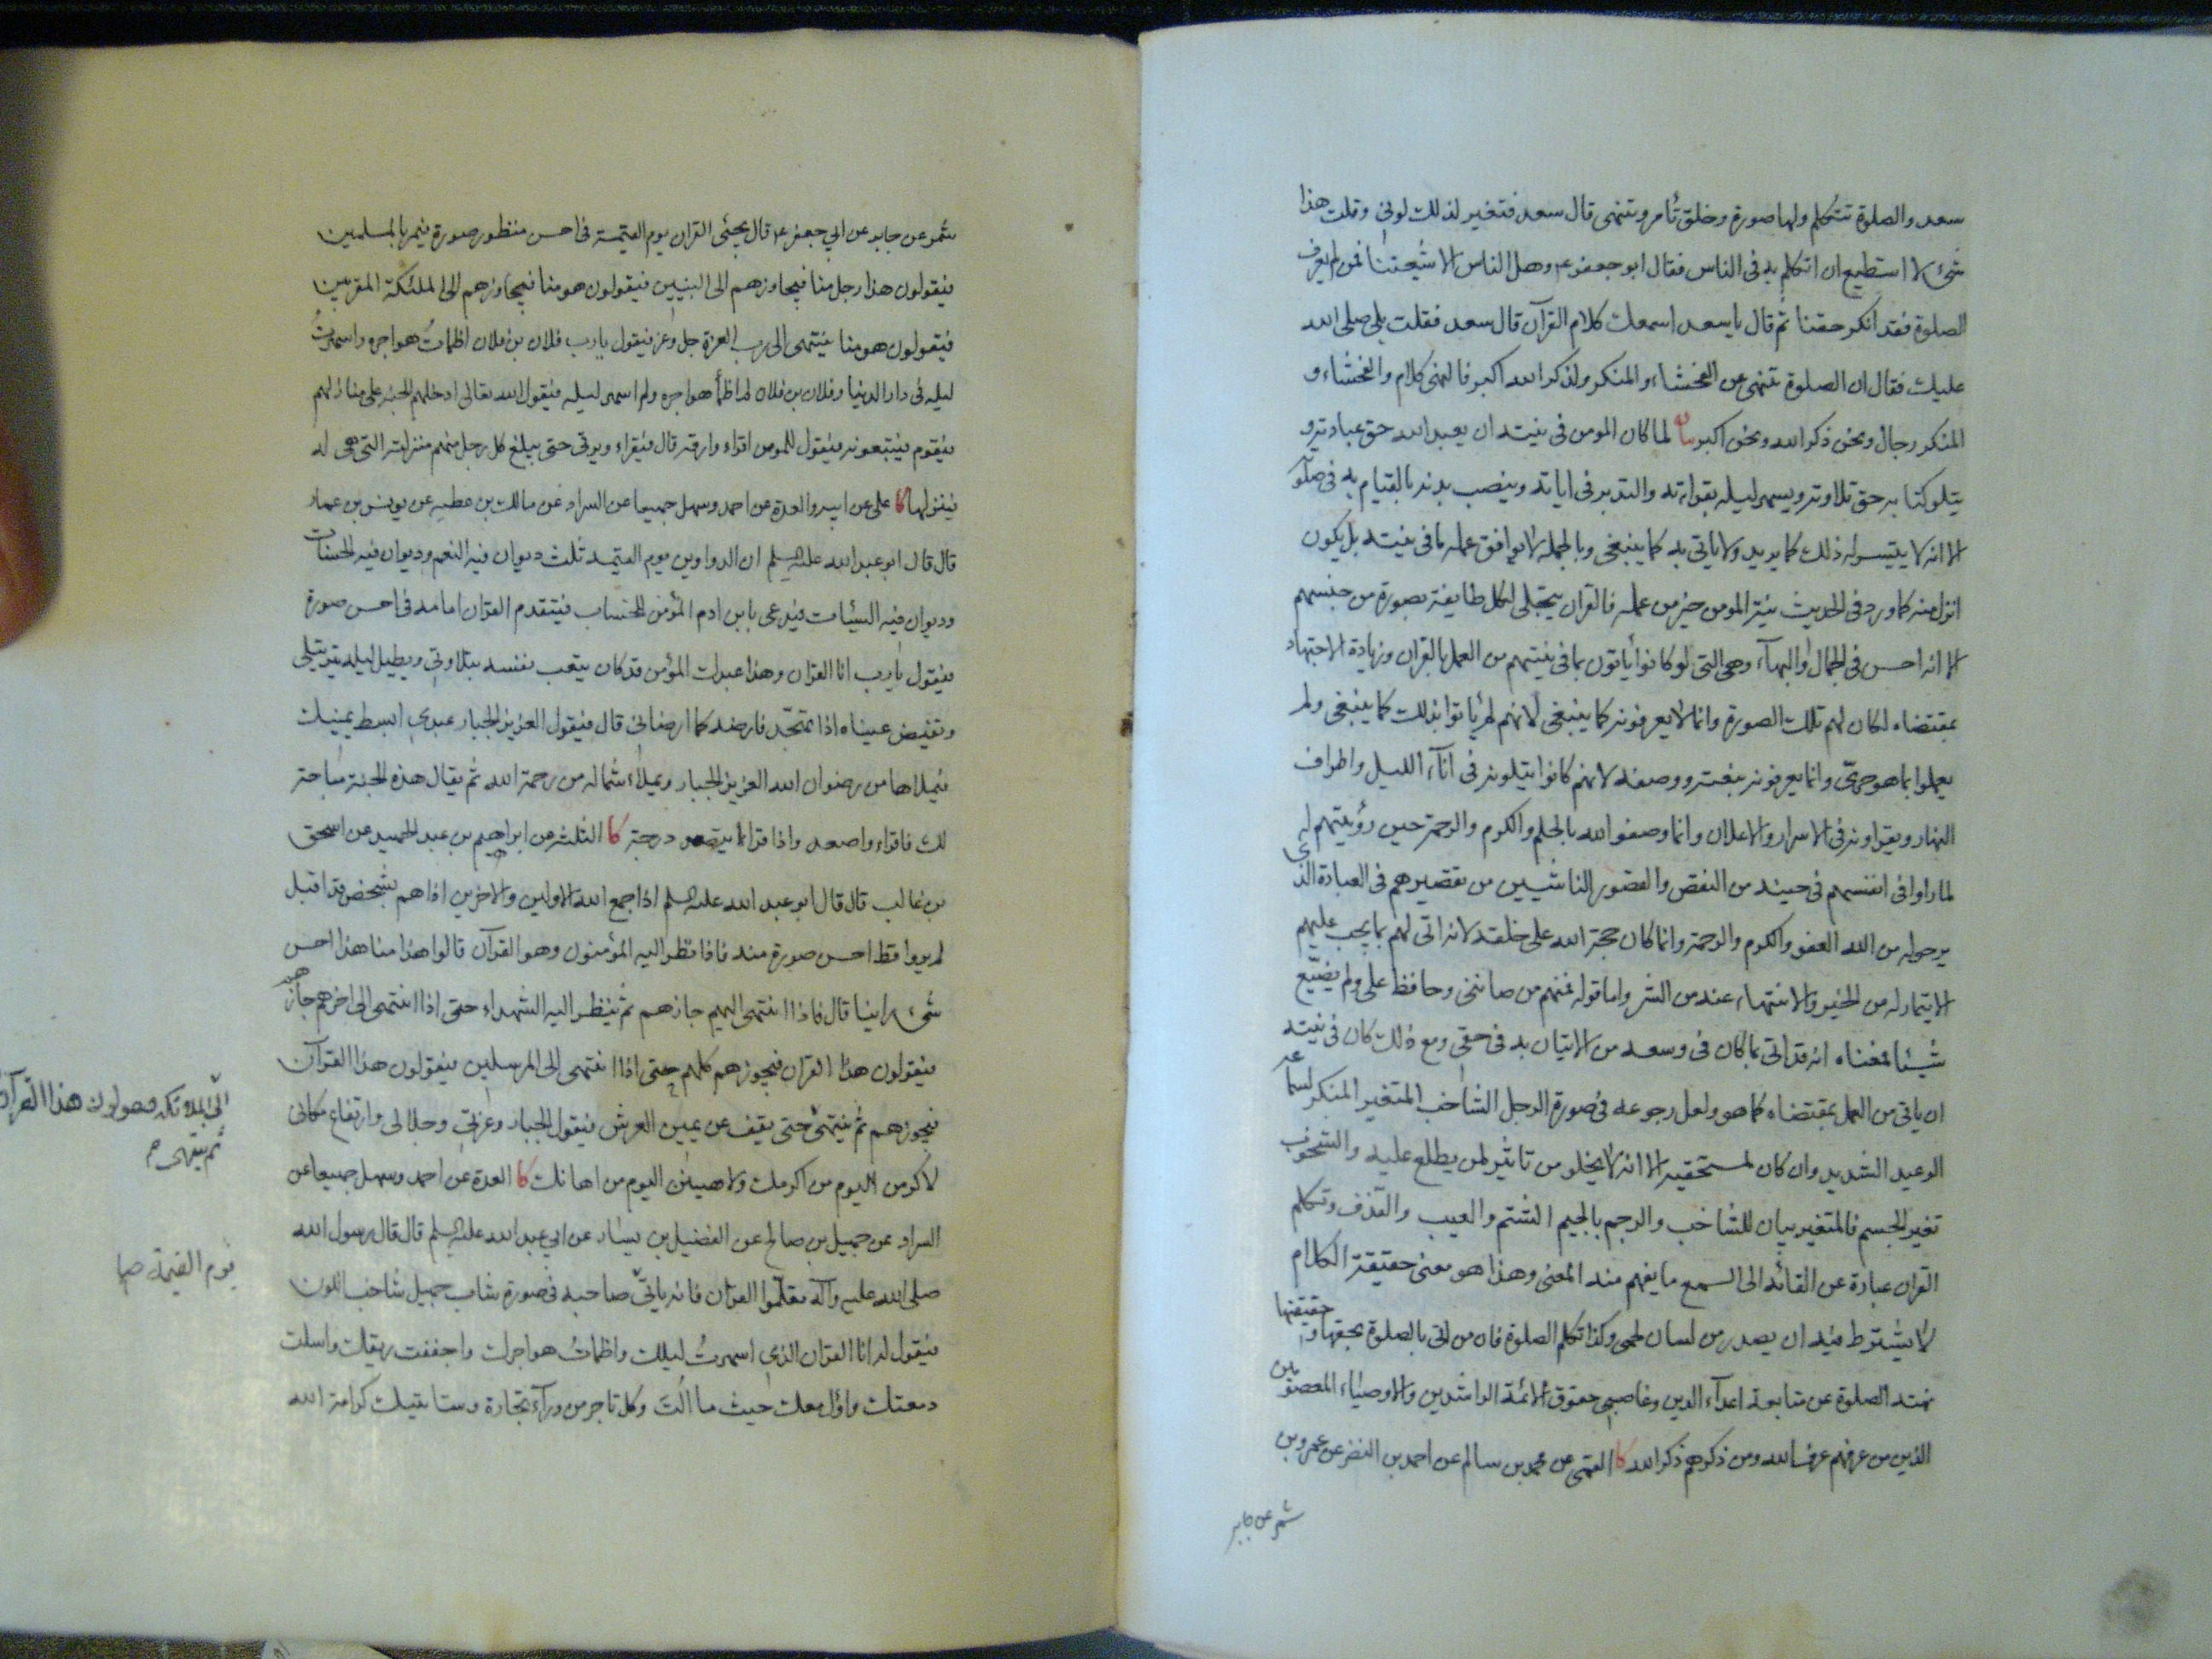 سعد والصلوة تتكلم ولها صورة وخلق تأمر وتنهى قال سعد فتغير لذلك لوني وقلت هذا
شيء لا استطيع ان اتكلم به في الناس فقال ابو جعفر ع وهل الناس الا شيعتنا فمن لم يعرف
الصلوة فقد انكر حقنا ثم قال يا سعد اسمعك كلام القرآن قال سعد فقلت بلى صلى الله
عليك فقال ان الصلوة تنهى عن الفحشاء والمنكر ولذكر الله اكبر فالنهي كلام والفحشاء و
المنكر رجال ونحن ذكر الله ونحن اكبر بيان لما كان المومن في نيته ان يعبد الله حق عبادته و
يتلو كتابه حق تلاوته ويسهر ليله بقراءته والتدبر في اياته وينصب بدنه بالقيام به في صلوته
الا انه لا يتيسر له ذلك كما يريد ولا ياتي به كما ينبغي وبالجمله لا يوافق عمله ما في نيته بل يكون
انزل منه كما ورد في الحديث نية المومن خير من عمله فالقران يتجلى لكل طايفة بصورة من جنسهم
الا انه احسن في الجمال والبهآء وهي التي لو كانوا يأتون بما في نيتهم من العمل بالقران وزيادة الاجتهاد
بمقتضاه لكان لهم تلك الصورة وانما لا يعرفونه كما ينبغي لانهم لم يأتوا بذلك كما ينبغي ولم
يعملوا بما هو حرىّ وانما يعرفونه بنعته ووصفه لانهم كانوا يتلونه في آناء الليل واطراف
النهار ويقراونه في الاسرار والاعلان وانما وصفوا الله بالحلم والكرم والرحمة حين رؤيتهم له
لما راوا في انفسهم في حينه من النقص والقصور الناشيين من تقصيرهم في العبادة الذى
يرجو له من الله العفو والكرم والرحمة وانما كان حجة الله على خلقه لانه اتى لهم بما يجب عليهم
الايتمار له من الخير والانتهاء عنه من الشر واما قوله فمنهم من صانني وحافظ على ولم يضيّع
شيئا فمعناه انه قد اتى بما كان في وسعه من الاتيان به في حقي ومع ذلك كان في نيته
ان ياتي من العمل بمقتضاه كما هو ولعل رجوعه في صورة الرجل الشاحب المتغير المنكر لسماعه
الوعيد الشديد وان كان لمستحقيه الا انه لا يخلو من تاثير لمن يطلع عليه والشحوب
تغير الجسم فالمتغير بيان للشاحب والرجم بالجيم الشتم والعيب والقذف وتكلم
القران عبارة عن القائه الى السمع ما يفهم منه المعنى وهذا هو معنى حقيقة الكلام
لا يشترط فيه ان يصدر من لسان لحمي وكذا تكلم الصلوة فان من اتى بالصلوة بحقها وحقيقتها
نهته الصلوة عن متابعة اعدآء الدين وغاصبي حقوق الائمة الراشدين والاوصياء المعصومين
الذين من عرفهم عرف الله ومن ذكرهم ذكر الله كا القمي عن محمد بن سالم عن احمد بن النضر عن عمرو بن
شمر عن جابر
شمر عن جابر عن ابي جعفر ع قال يجئى القران يوم القيمة في احسن منظور صورة فيمر بالمسلمين
فيقولون هذا رجل منا فيجاوزهم الى النبيين فيقولون هو منا فيجاوزهم الى الملئكة المقربين
فيقولون هو منا فينتهى الى رب العزة جل وعز فيقول يارب فلان بن فلان اظمات هواجره واسهرت
ليله في دار الدنيا وفلان بن فلان لم اظمأ هواجره ولم اسهر ليله فيقول الله تعالى ادخلهم الجنة على منازلهم
فيقوم فيتبعونه فيقول للمومن اقراء وارقه قال فيقراء ويرقى حتى يبلغ كل رجل منهم منزلته التي هي له
فينزلها كا على عن ابيه والعدة عن احمد وسهل جميعا عن السراد عن مالك بن عطيه عن يونس بن عمار
قال قال ابو عبد الله عليه السلم ان الدواوين يوم القيمه ثلث ديوان فيه النعم وديوان فيه الحسنات
وديوان فيه السيئات فيدعى بابن ادم المؤمن للحساب فيتقدم القران امامه في احسن صورة
فيقول يا رب انا القران وهذا عبدك المؤمن قد كان يتعب نفسه بتلاوتي ويطيل ليله بترتيلي
وتفيض عيناه اذا تهجّد فارضه كما ارضاني قال فيقول العزيز الجبار عبدي ابسط يمينك
فيملاها من رضوان الله العزيز الجبار ويملاء شماله من رحمة الله ثم يقال هذه الجنة مباحة
لك فاقراء واصعد واذا قرا اية صعد درجة كا الثلثة عن ابراهيم بن عبد الحميد عن اسحق
بن غالب قال قال ابو عبد الله عليه السلم اذا جمع الله الاولين والاخرين اذا هم بشخص قد اقبل
لم يروا قط احسن صورة منه فاذا نظر اليه المؤمنون وهو القرآن قالوا هذا منا هذا احسن
شيء راينا قال فاذا انتهى اليهم جازهم ثم ينظر اليه الشهداء حتى اذا انتهى الى اخرهم جازهم
فيقولون هذا القران فيجوزهم كلهم حتى اذا انتهى الى المرسلين فيقولون هذا القرآن
فيجوزهم ثم ينتهى حتى يقف عن يمين العرش فيقول الجبار وعزتي وجلالي وارتفاع مكاني
لاكرمن اليوم من اكرمك ولاهينن اليوم من اهانك كا العدة عن احمد وسهل جميعا عن
السراد عن جميل بن صالح عن الفضيل بن يسار عن ابي عبد الله عليه السلم قال قال رسول الله
صلى الله عليه وآله تعلّموا القران فانه ياتي صاحبه في صورة شاب جميل شاحب اللون
فيقول له انا القران الذي اسهرتُ ليلك واظماتُ هواجرك واجففت ريقك واسلت
دمعتك واؤل معك حيث ما الْتَ وكل تاجر من ورآء تجارة وستاتيك كرامة الله
هذا القرآن
ثم ينتهى
يوم القيمة